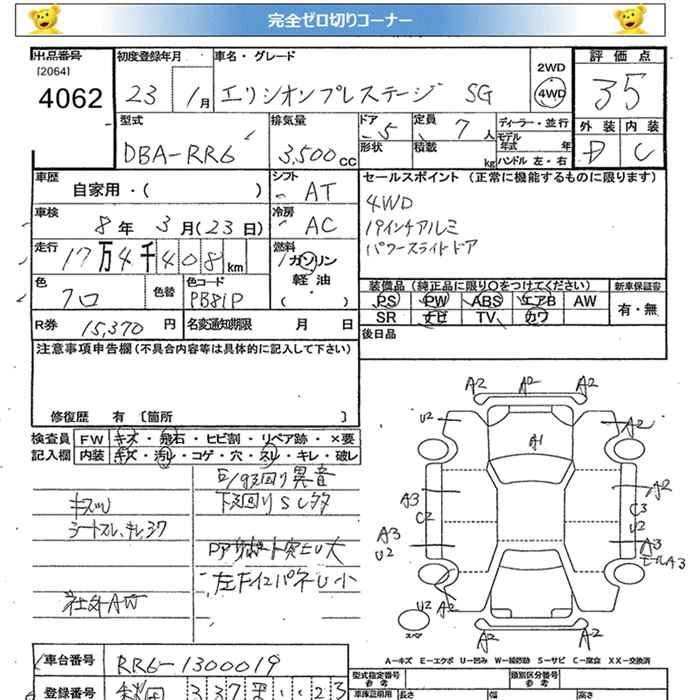 完全ゼロ切りコーナー
出品番号 初度登録年月 車名・グレード 2WD 評価点
[2064]
4062 23 1月 エリシオンプレステージ SG 4WD 35
型式 排気量 ドア 5 定員 7人 ディーラー・並行 外装 内装
DBA-RR6 3,500cc 形状 積載 kg モデル年式 年 D C
ハンドル 左・右
車歴 シフト セールスポイント (正常に機能するものに限ります)
自家用・( ) AT 4WD
車検 冷房 19インチアルミ
8年 3月(23日) AC パワースライドドア
走行 燃料
17万4千408km ガソリン
軽油
( )
色 色替 色コード 装備品 (純正品に限り○をつけてください) 新車保証書
クロ PB81P PS PW ABS エアB AW 有・無
SR ナビ TV カワ
R券 15,370円 名変通知期限 月 日 後日品
注意事項申告欄(不具合内容等は具体的に記入して下さい)
修復歴 有 [箇所 ]
検査員 FW キズ・飛石・ヒビ割・リペア跡・×要
記入欄 内装 キズ・汚レ・コゲ・穴・スレ・キレ・破レ
E/g回り異音
キズU 下廻りSC多
シートスレ、キレ、コゲ
左下インパネU小
社外AW
A2 A2 A2
U2 A2
A1
A3 A2
C2 C3
U2
A3 A3
U2 モールA3
U2 A2
スペア
A2 A2
A-キズ E-エクボ U-凹ミ W-補修跡 S-サビ C-腐食 XX-交換済
車台番号 RR6-1300019 型式指定番号 参考 類別区分番号 参考
登録番号 車庫証明用 長さ 幅 高さ